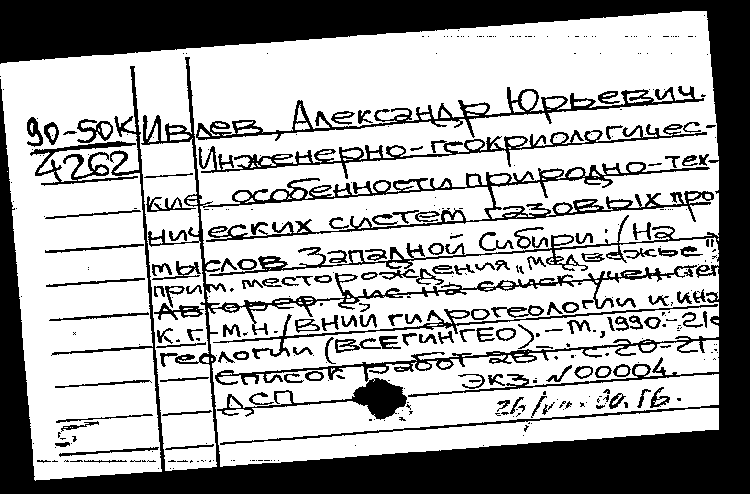 90-50К Ивлев, Александр Юрьевич.
4262 Инженерно-геокриологичес-
кие особенности природно-тех-
нических систем газовых про-
мыслов Западной Сибири: (На
прим. месторождения "Медвежье")
Автореф. дис. на соиск. учен. степ
к.г.-м.н. / ВНИИ гидрогеологии и инж
геологии (ВСЕГИНГЕО). - М., 1990. - 21с
Список работ авт.: с. 20-21
ДСП экз. N00004.
5